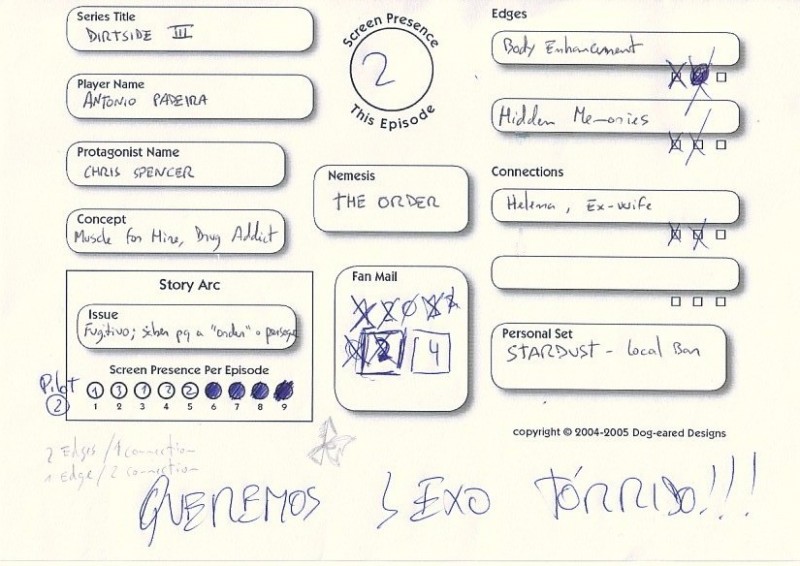 Series Title
DIRTSIDE III
Player Name
ANTONIO PADEIRA
Protagonist Name
CHRIS SPENCER
Concept
Muscle for Hire, Drug Addict
Story Arc
Issue
Fugitivo; saber pq a "order" o persegue
Screen Presence Per Episode
Pilot
2
1 3 1 3 2
1 2 3 4 5 6 7 8 9
2 Edges / 1 connection
1 Edge / 2 connection
Screen Presence
2
This Episode
Nemesis
THE ORDER
Fan Mail
2 4
Edges
Body Enhancement
Hidden Memories
Connections
Helena, Ex-wife
Personal Set
STARDUST - Local Bar
copyright © 2004-2005 Dog-eared Designs
QUEREMOS SEXO TÓRRIDO!!!